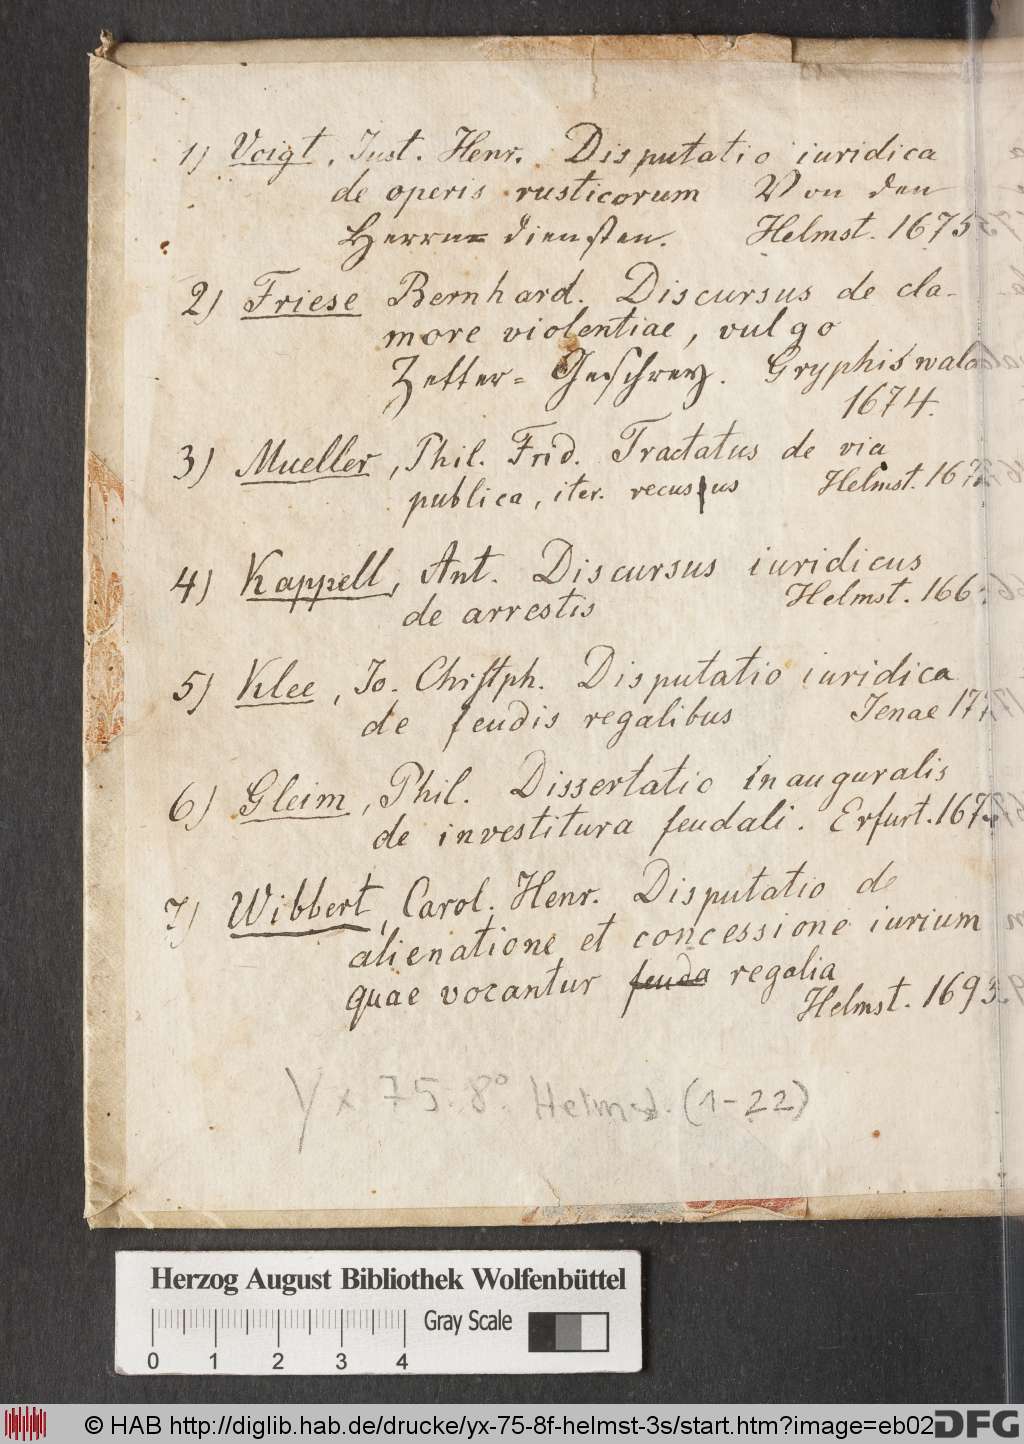 1) Voigt, Just. Henr. Disputatio iuridica
de operis rusticorum Von den
Herrn= diensten. Helmst. 1675
2) Friese Bernhard. Discursus de cla-
more violentiae, vulgo
Zetter= Geschrey. Gryphiswald
1674.
3) Mueller, Phil. Frid. Tractatus de via
publica, iter. recusus Helmst. 167
4) Kappell, Ant. Discursus iuridicus
de arrestis Helmst. 166
5) Klee, Jo. Christph. Disputatio iuridica
de feudis regalibus Jenae 17
6) Gleim, Phil. Dissertatio inauguralis
de investitura feudali. Erfurt. 167
7) Wibbert, Carol. Henr. Disputatio de
alienatione et concessione iurium
quae vocantur feuda regalia
Helmst. 1693
Yx 75. 8° Helmst. (1-22)
Herzog August Bibliothek Wolfenbüttel
Gray Scale
0 1 2 3 4
© HAB http://diglib.hab.de/drucke/yx-75-8f-helmst-3s/start.htm?image=eb02
DFG